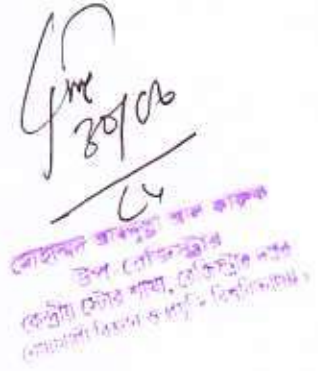 ৩০/০৬
মোহাম্মদ আবদুল্লা আল ফারুক
উপ রেজিস্ট্রার
কেন্দ্রীয় স্টোর শাখা, রেজিস্ট্রার দপ্তর
নোয়াখালী বিজ্ঞান ও প্রযুক্তি বিশ্ববিদ্যালয়।